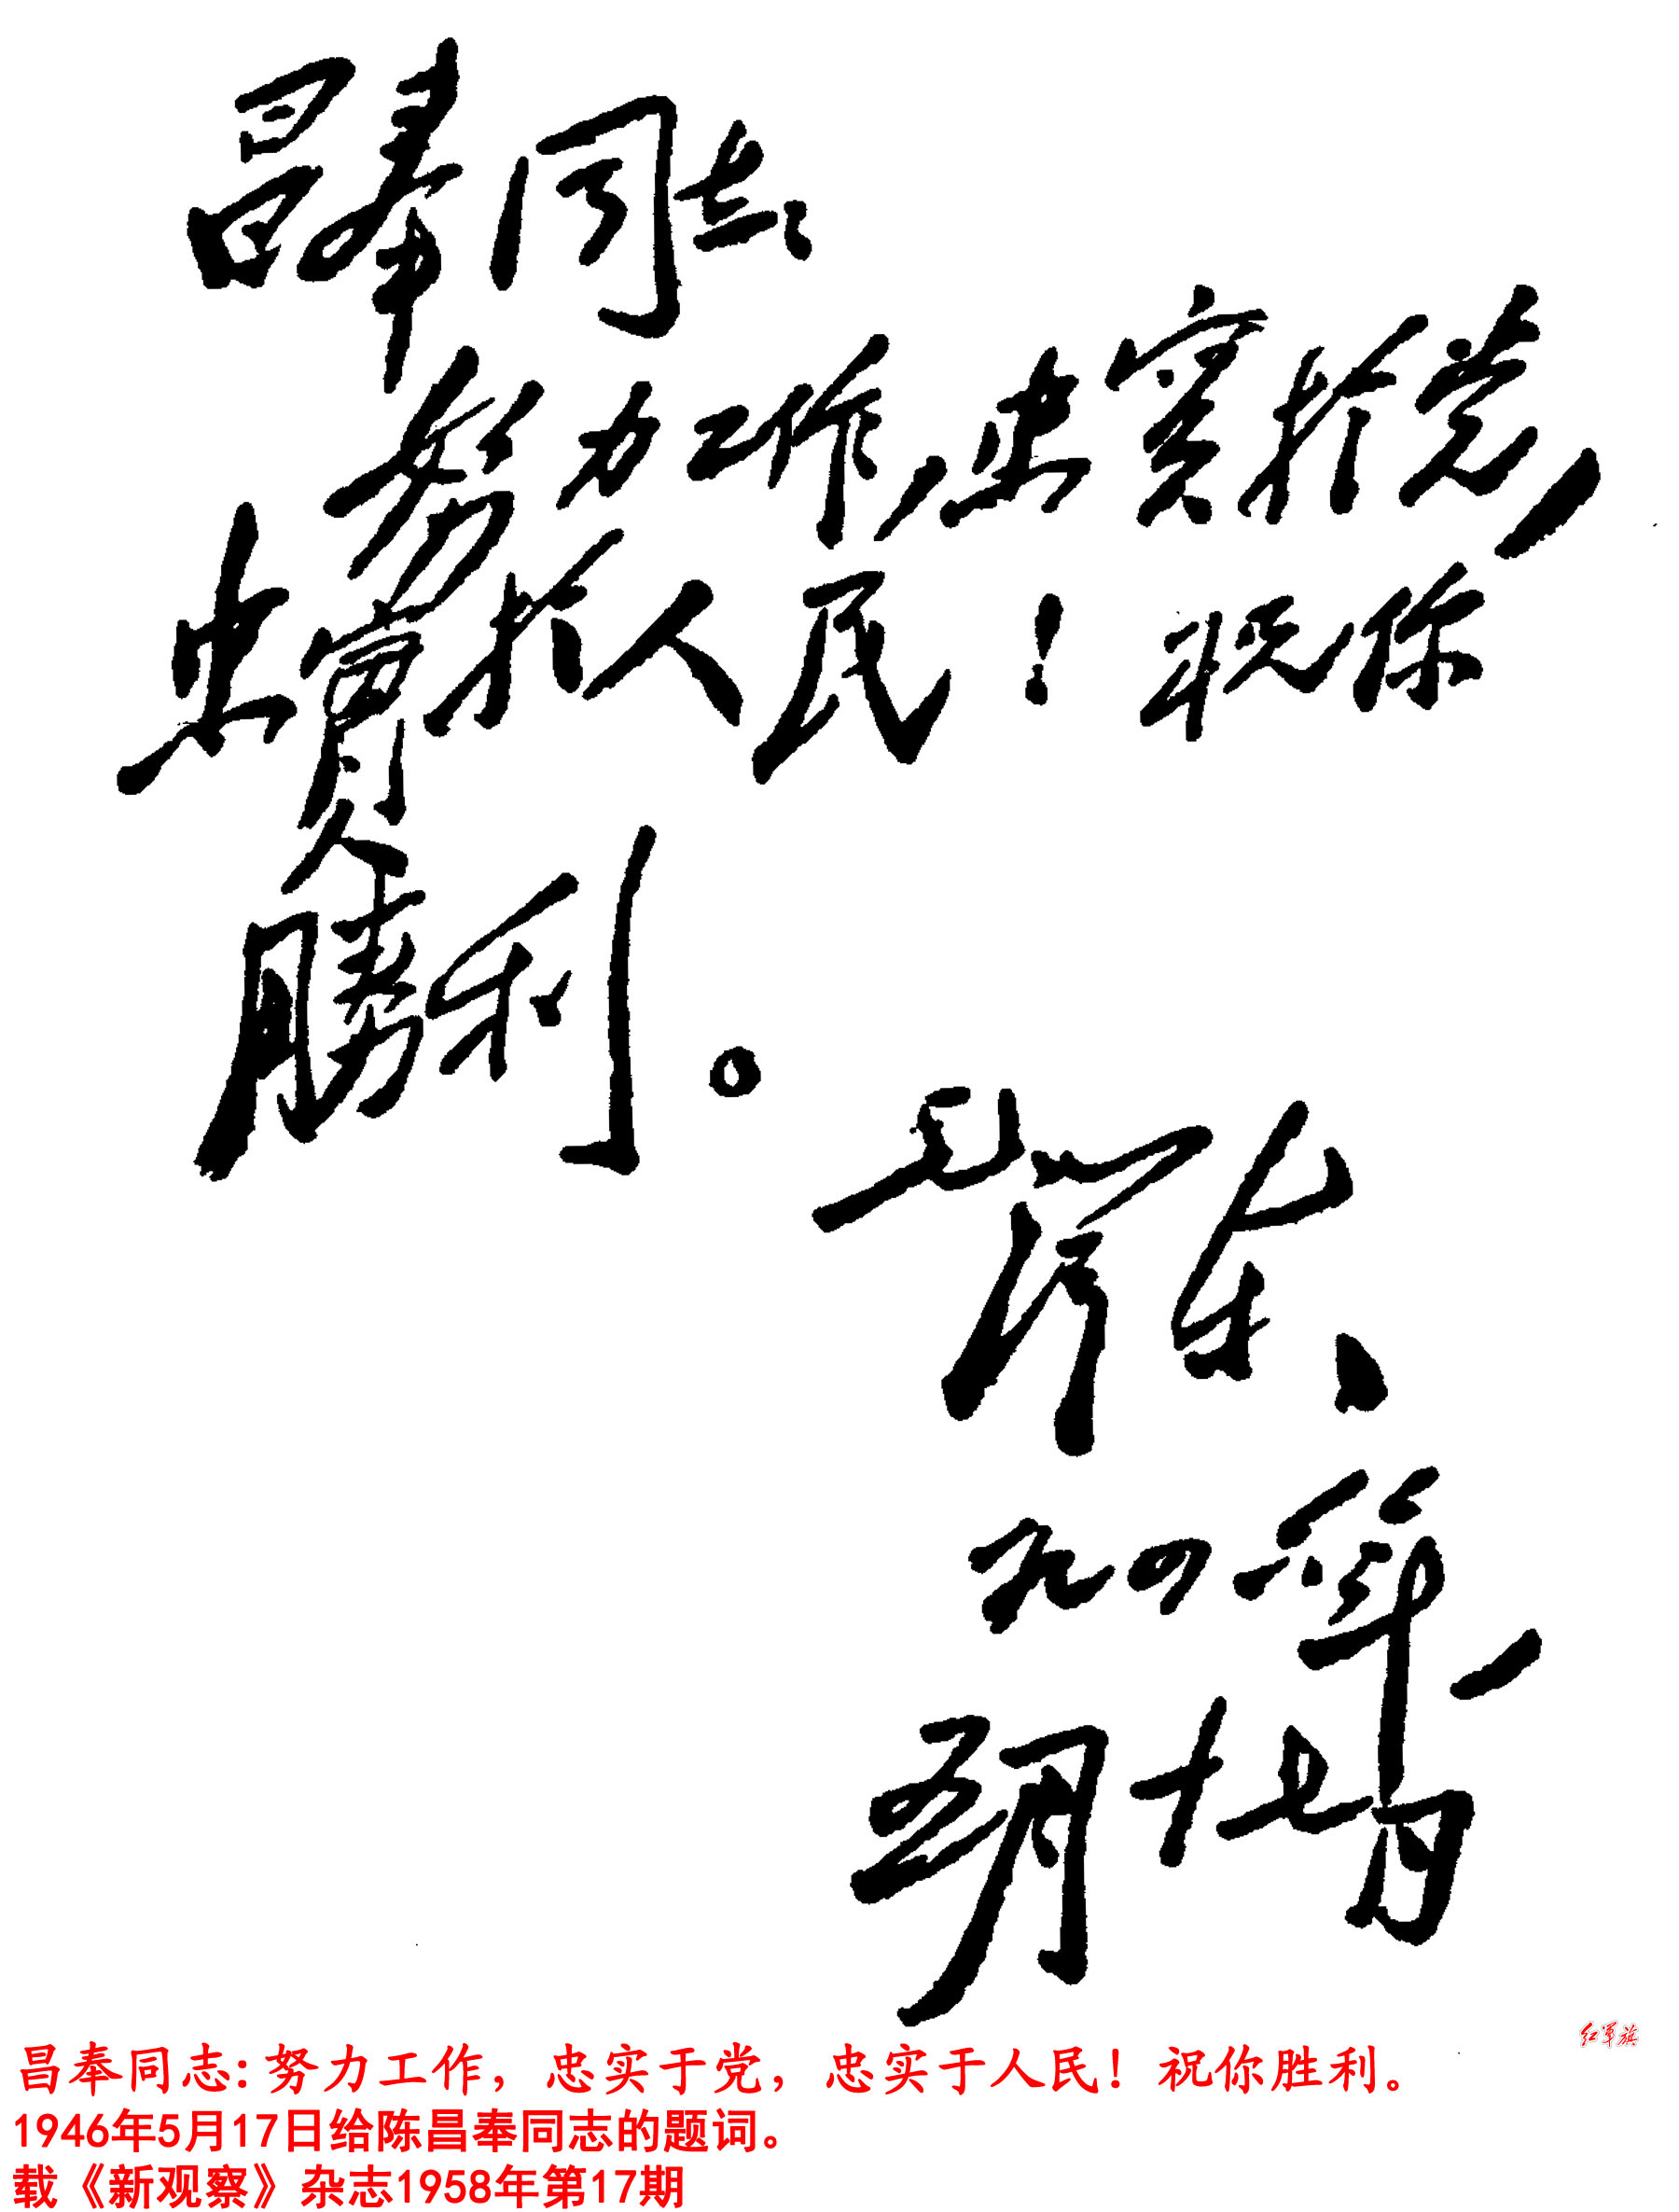 昌奉同志:
努力工作，忠實於党，
忠實於人民！祝你
勝利。
毛澤东
一九四六年
五月十七日
红军旗
昌奉同志:努力工作，忠实于党，忠实于人民！祝你胜利。
1946年5月17日给陈昌奉同志的题词。
载《新观察》杂志1958年第17期